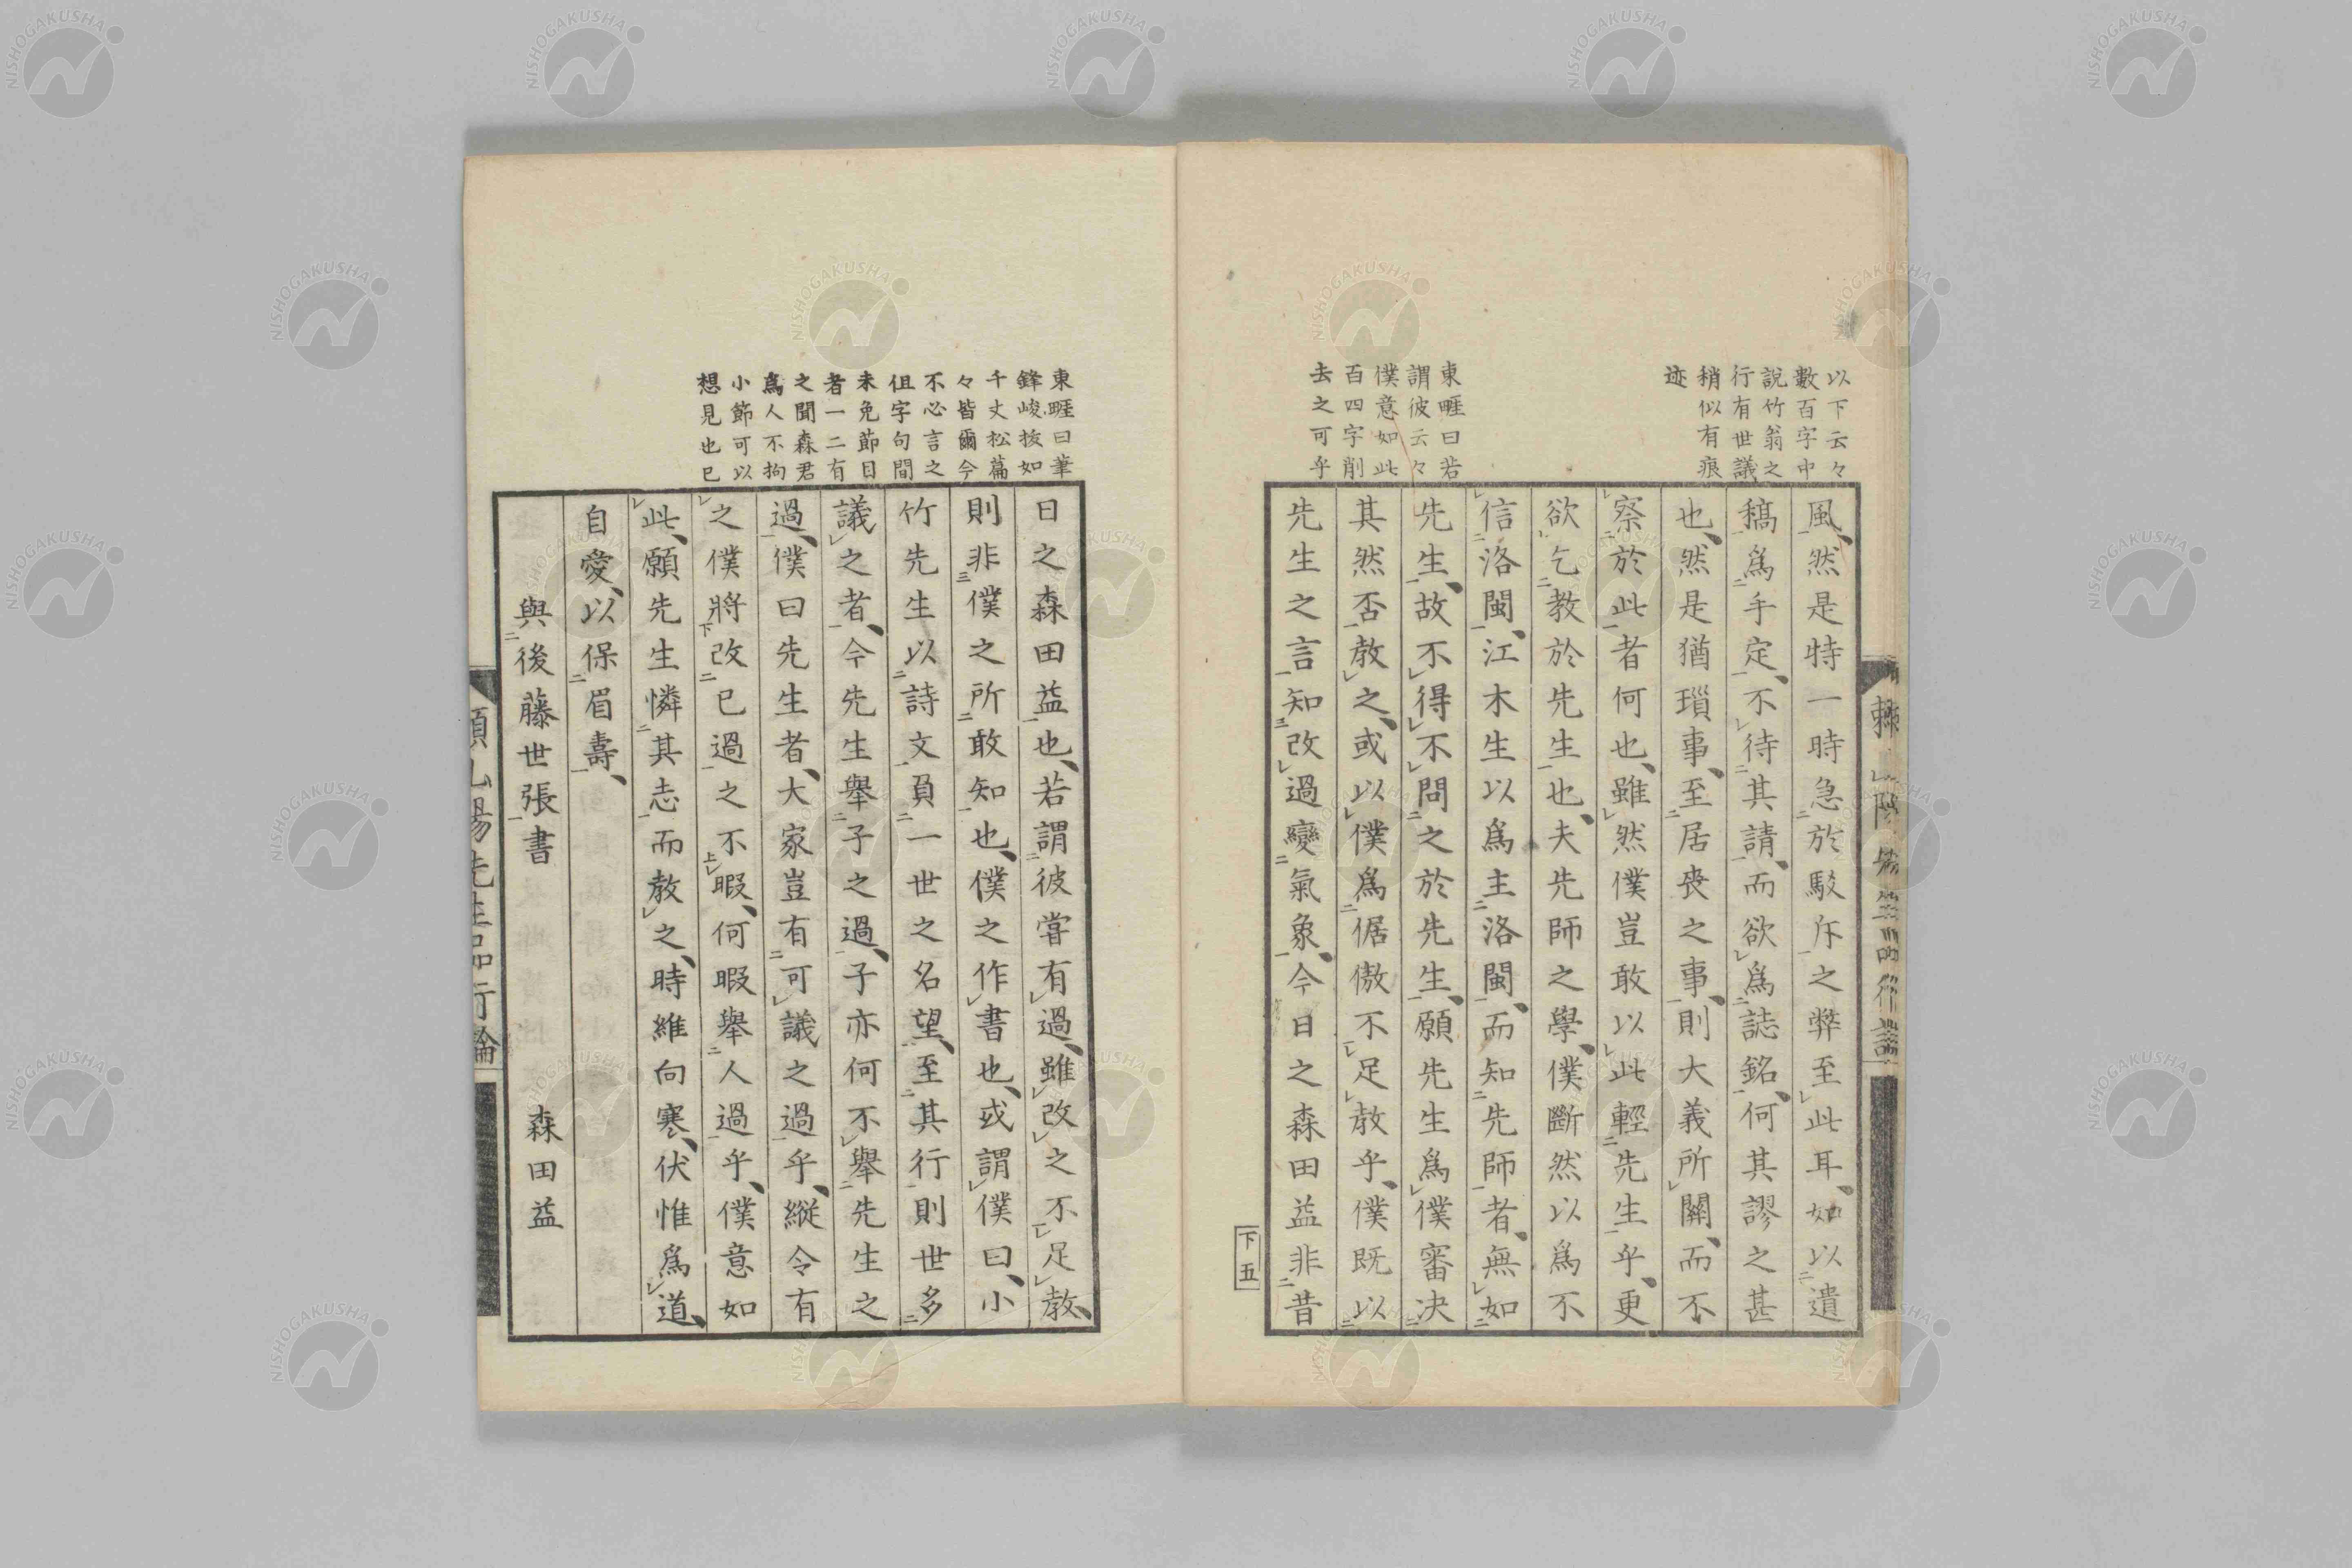 以下云々
數百字中
說竹翁之
行有世議
稍似有痕
迹
東睚曰若
謂彼云々
僕意如此
百四字削
去之可乎
風、然是特一時急於駁斥之弊至此耳、如以遺
稿爲手定、不待其請、而欲爲誌銘、何其謬之甚
也、然是猶瑣事、至居喪之事、則大義所關、而不
察於此者何也、雖然僕豈敢以此輕先生乎、更
欲乞教於先生也、夫先師之學、僕斷然以爲不
信洛閩、江木生以爲主洛閩、而知先師者、無如
先生、故不得不問之於先生、願先生爲僕審決
其然否教之、或以僕爲倨傲不足教乎、僕既以
先生之言知改過變氣象、今日之森田益非昔
下五
東睚曰筆
鋒峻拔如
千丈松篇
々皆爾今
不必言之
但字句間
未免節目
者一二有
之聞森君
爲人不拘
小節可以
想見也已
日之森田益也、若謂彼嘗有過、雖改之不足教、
則非僕之所敢知也、僕之作書也、或謂僕曰、小
竹先生以詩文負一世之名望、至其行則世多
議之者、今先生舉子之過、子亦何不舉先生之
過、僕曰先生者、大家豈有可議之過乎、縱令有
之僕將改已過之不暇、何暇舉人過乎、僕意如
此、願先生憐其志而教之、時維向寒、伏惟爲道、
自愛、以保眉壽、
與後藤世張書 森田益
賴山陽先生品行論